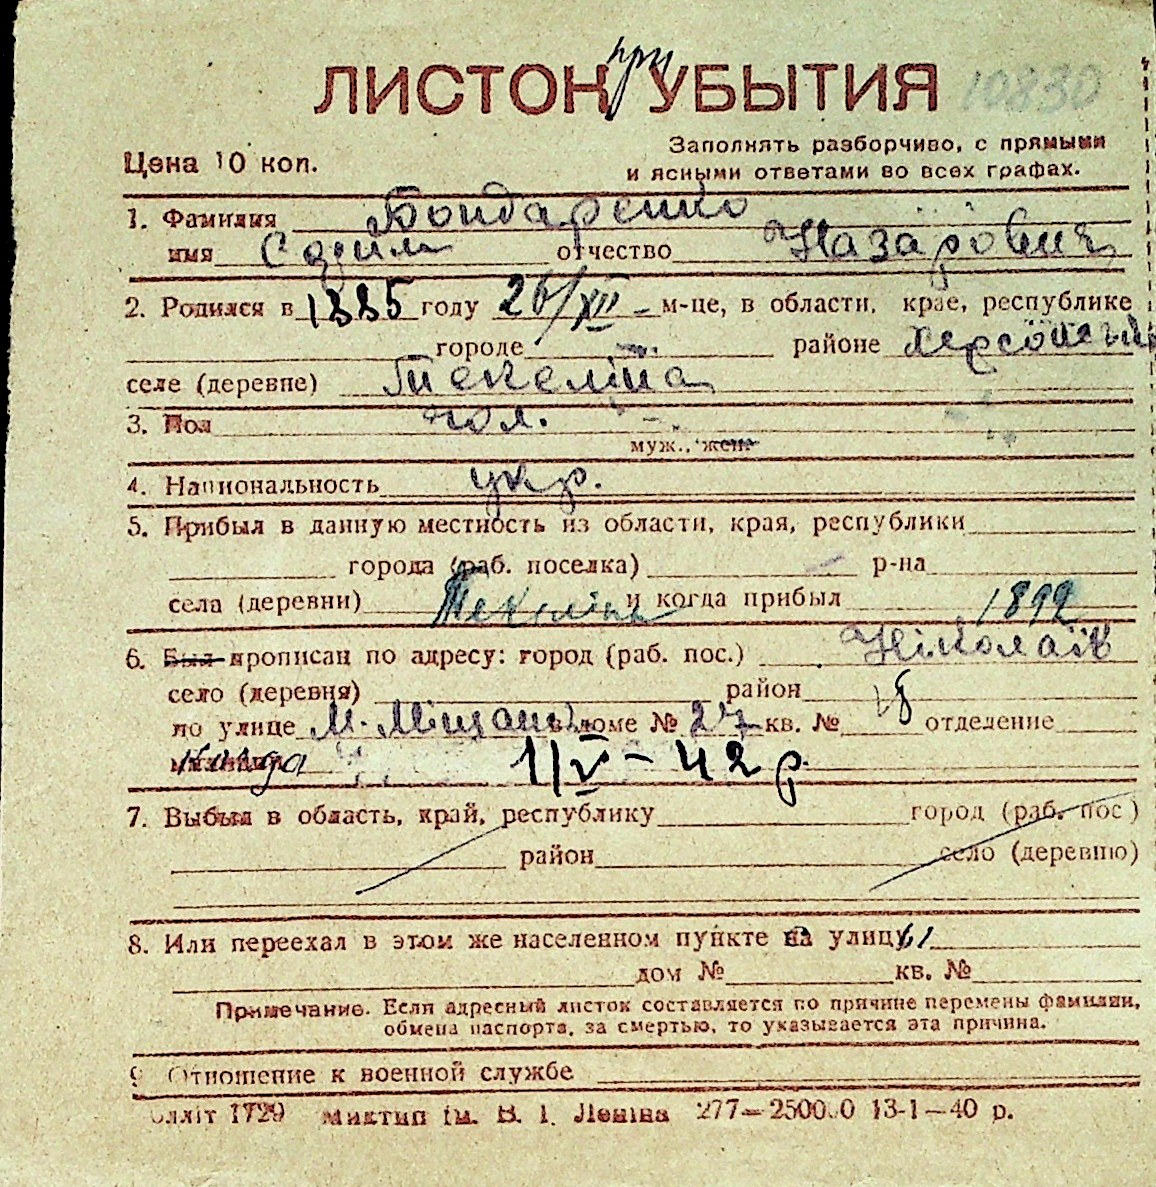 ЛИСТОК при УБЫТИЯ 10830
Цена 10 коп.
Заполнять разборчиво, с прямыми
и ясными ответами во всех графах.
1. Фамилия Бондаренко
имя отчество Назарович
2. Родился в 1885 году 26/XII - м-це, в области, крае, республике
городе - районе Херсонський
селе (деревне) Текеліна
3. Пол чол.
муж., жен.
4. Национальность укр.
5. Прибыл в данную местность из области, края, республики
города (раб. поселка) р-на
села (деревни) и когда прибыл 1892
6. Был прописан по адресу: город (раб. пос.) Ніколаїв
село (деревня) район
по улице М. Міщанська в доме № 27 кв. № отделение
когда 1/V - 42 р.
7. Выбыл в область, край, республику город (раб. пос.)
район село (деревню)
8. Или переехал в этом же населенном пункте на улицу
дом № кв. №
Примечание. Если адресный листок составляется по причине перемены фамилии,
обмена паспорта, за смертью, то указывается эта причина.
9. Отношение к военной службе
1729 Миктип ім. В. І. Леніна 277—250000 13-1—40 р.